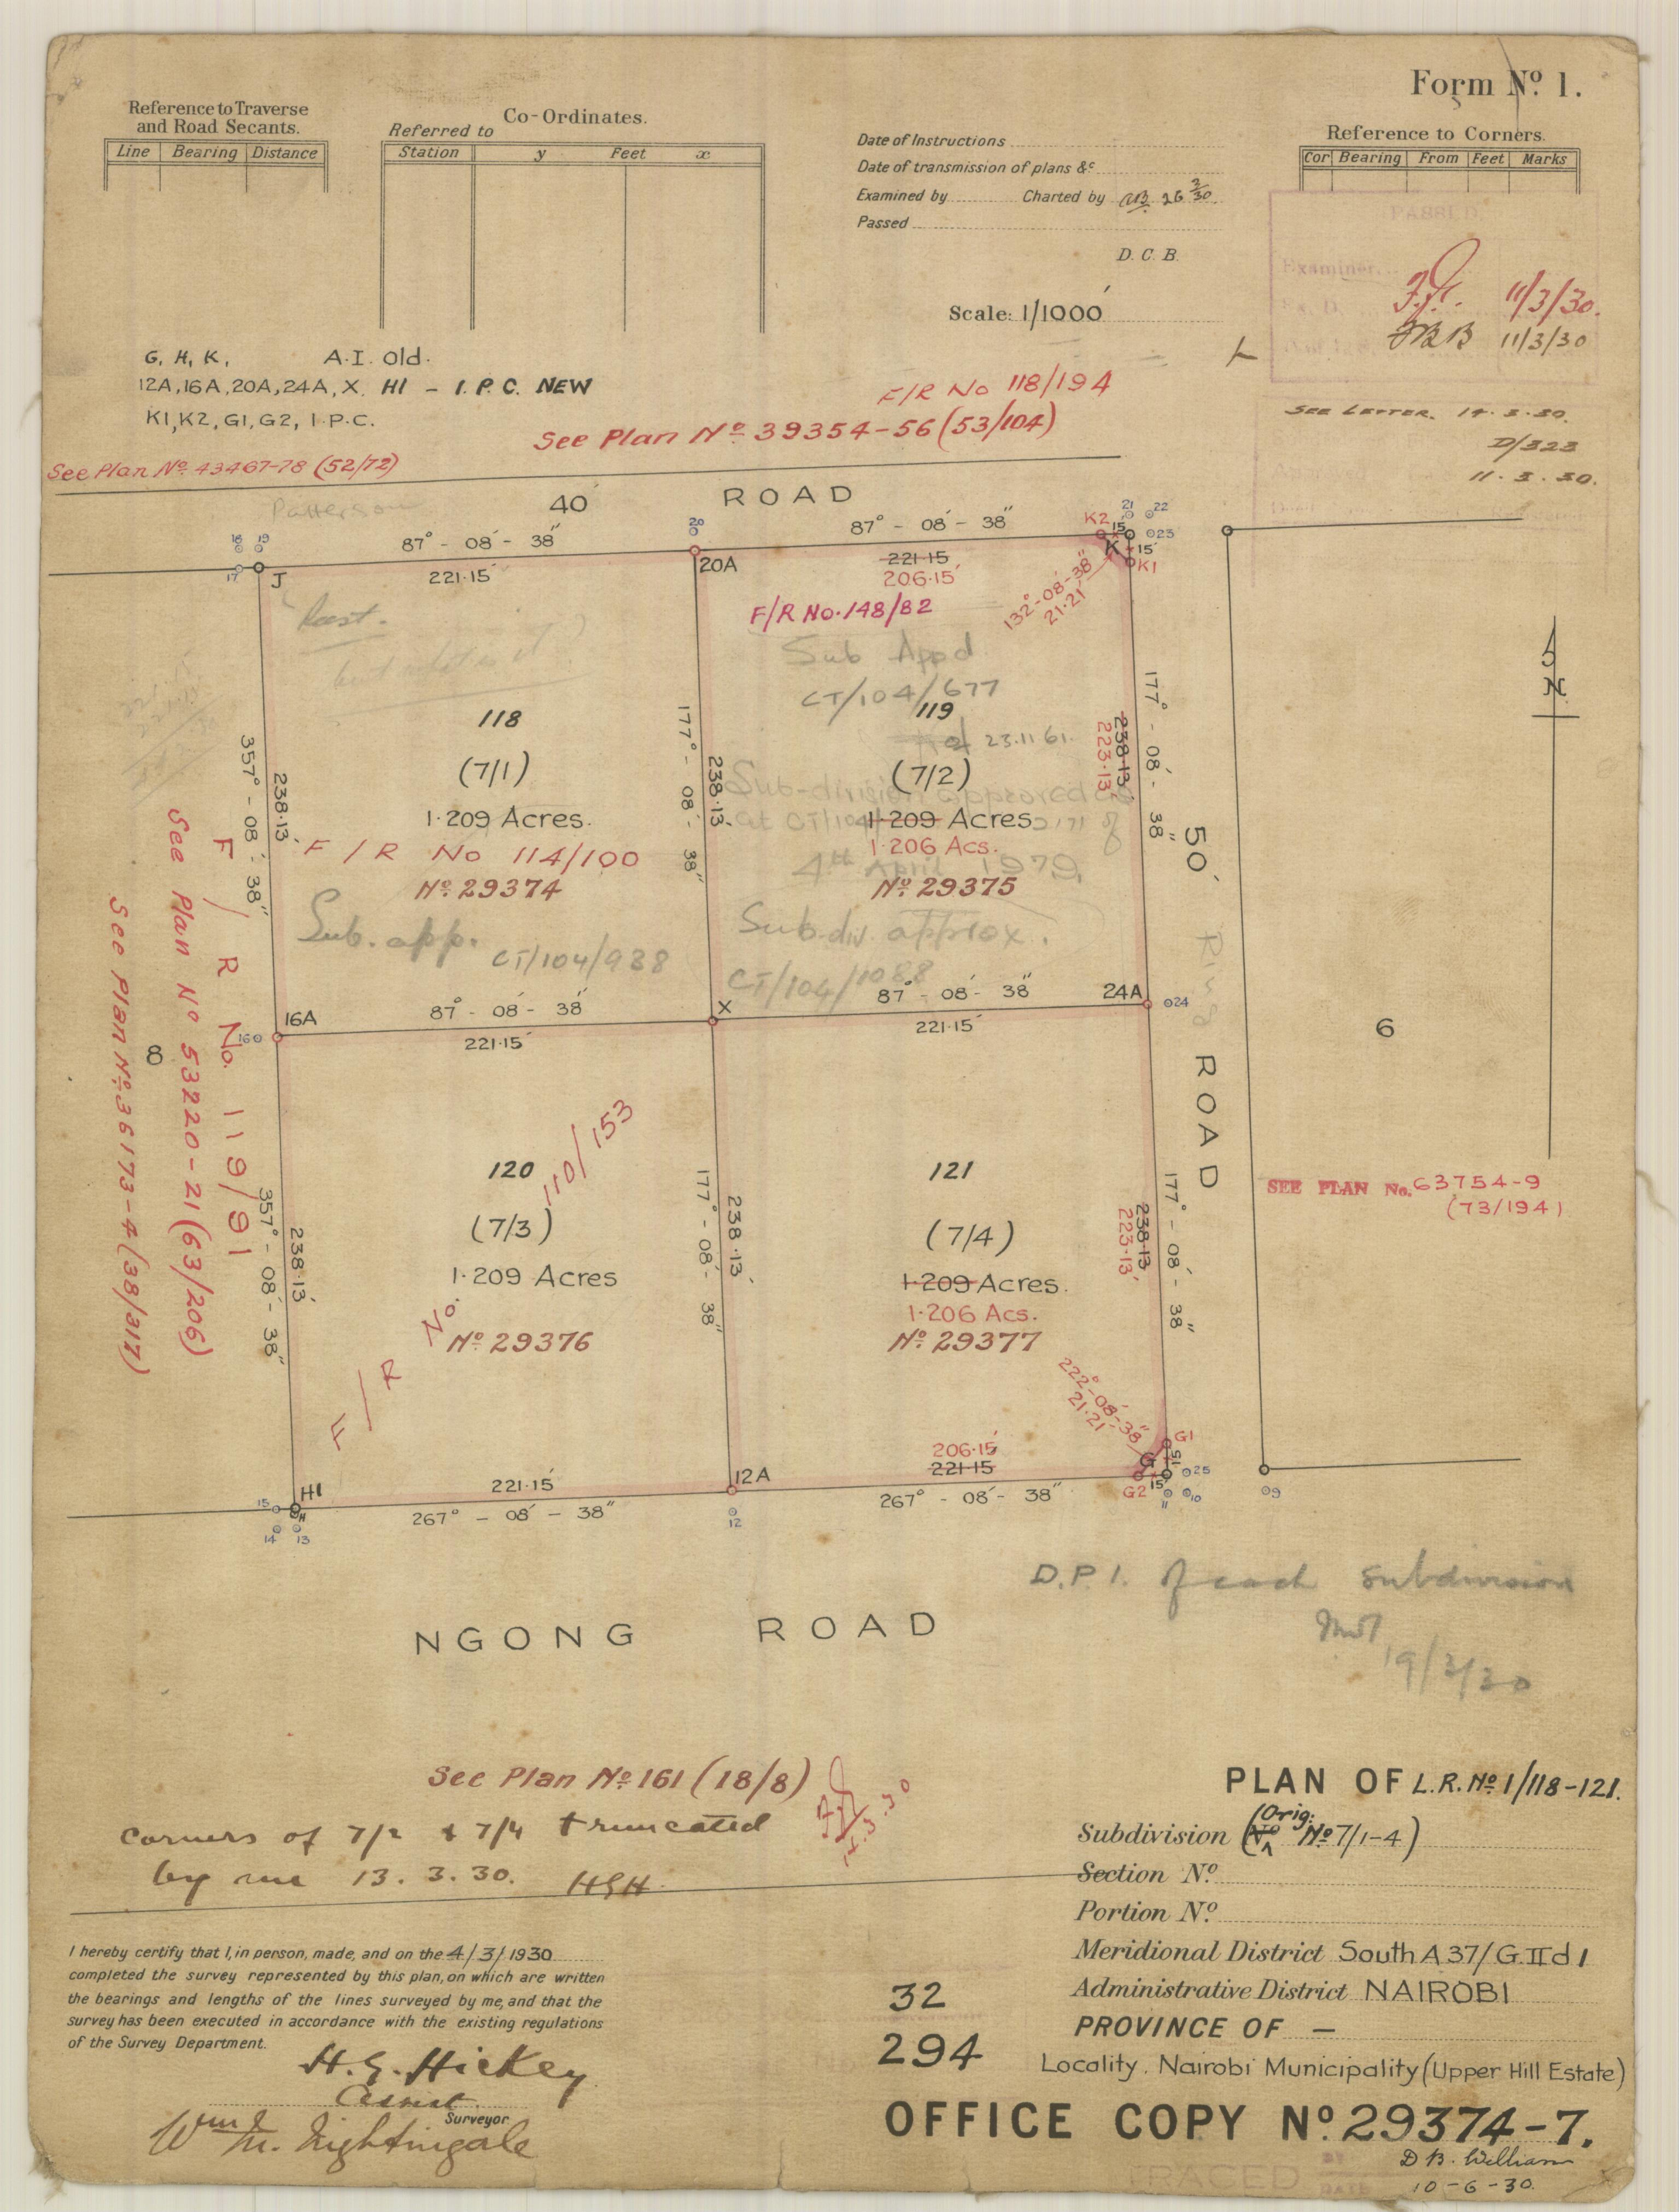 Form No. 1.
Reference to Traverse
and Road Secants.
Line Bearing Distance
Co-Ordinates.
Referred to
Station y Feet x
Date of Instructions
Date of transmission of plans &c
Examined by Charted by 26 3/30
Passed
D. C. B.
Scale: 1/1000'
Reference to Corners.
Cor Bearing From Feet Marks
PASSED
Examiner
11/3/30.
11/3/30
SEE LETTER. 14.3.30.
D/323
11.3.30.
G, H, K, A.I. old.
12A, 16A, 20A, 24A, X. H1 - I.P.C. NEW
K1, K2, G1, G2, I.P.C.
F/R No 118/194
See Plan No 39354-56 (53/104)
See Plan No 43467-78 (52/72)
40' ROAD
18 19
17
J
87° - 08' - 38"
221.15'
20
20A
87° - 08' - 38"
221.15
206.15'
K2
21 22
15'
23
K
15'
K1
132°-08'-38"
21.21'
F/R No. 148/82
but what is it?
Sub Appd
CT/104/677
118
119
23.11.61.
(7/1)
(7/2)
Sub-division approved
at CT/104
1.209 Acres.
1.209 Acres
1.206 Acs.
4th April 1979
F/R No 114/100
No 29374
No 29375
Sub. app. CT/104/938
Subdiv. approx.
CT/104/1088
357° - 08' - 38"
238.13'
177° - 08' - 38"
238.13'
177° - 08' - 38"
238.13
223.13'
50' Ring ROAD
6
N
16A
16
87° - 08' - 38"
221.15'
X
87° - 08' - 38"
221.15'
24A
24
8
F/R No. 119/91
See Plan No 53220-21 (63/206)
See Plan No. 36173-4 (38/317)
120
(7/3)
1.209 Acres
No 29376
F/R No. 110/153
121
(7/4)
1.209 Acres.
1.206 Acs.
No 29377
357° - 08' - 38"
238.13'
177° - 08' - 38"
238.13'
177° - 08' - 38"
238.13
223.13'
SEE PLAN No. 63754-9
(73/194)
222°-08'-38"
21.21'
G1
G
15'
25
G2
15'
11
10
09
H1
H
15
14 13
221.15'
267° - 08' - 38"
12A
12
206.15'
221.15
267° - 08' - 38"
D.P.1. of each subdivision
19/3/30
NGONG ROAD
See Plan No 161 (18/8)
Corners of 7/2 & 7/4 truncated
by me 13.3.30. HGH
PLAN OF L.R. No 1/118-121.
Subdivision (Orig: No 7/1-4)
Section No.
Portion No.
Meridional District South A 37/G.II d 1
Administrative District NAIROBI
PROVINCE OF —
Locality. Nairobi Municipality (Upper Hill Estate)
32
294
OFFICE COPY No. 29374-7.
D B. William
10-6-30.
TRACED
I hereby certify that I, in person, made, and on the 4/3/1930
completed the survey represented by this plan, on which are written
the bearings and lengths of the lines surveyed by me, and that the
survey has been executed in accordance with the existing regulations
of the Survey Department.
H. G. Hickey
Assist
Surveyor
Wm M. Nightingale